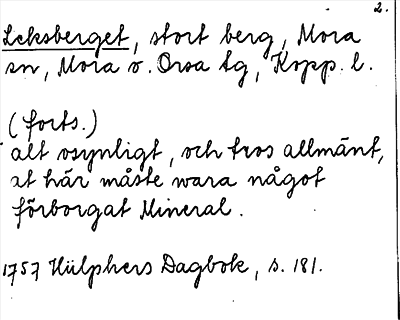 2.
Leksberget, stort berg, Mora
sn, Mora o. Orsa tg, Kopp. l.
(forts.)
alt osynligt, och tros allmänt,
at här måste wara något
förborgat Mineral.
1757 Hülphers Dagbok, s. 181.